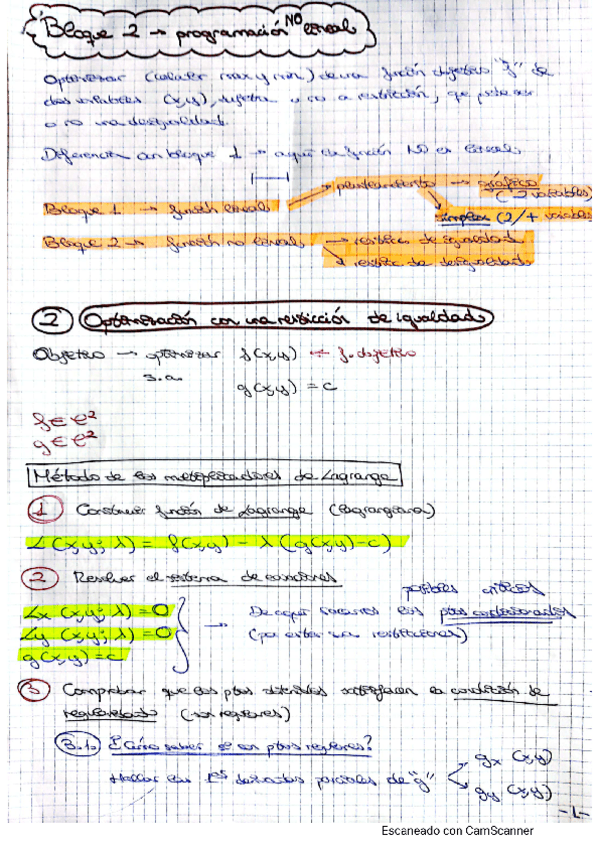 Bloque 2 → programación NO lineal
Optimizar (calcular max y min) de una función objetivo "f" de
dos variables (x,y), sujeta o no a restricción, que puede ser
o no una desigualdad.
Diferencia con bloque 1 → aquí la función NO es lineal.
Bloque 1 → función lineal → planteamiento → gráfico
(2 variables)
simplex (2/+ variables
Bloque 2 → función no lineal → restricc de igualdad
restricc de desigualdad
2 Optimización con una restricción de igualdad
Objetivo → optimizar f(x,y) ← f. objetivo
s.a. g(x,y) = c
f ∈ C²
g ∈ C²
Método de los multiplicadores de Lagrange
1 Construir función de Lagrange (lagrangiana)
L(x,y; λ) = f(x,y) - λ(g(x,y)-c)
2 Resolver el sistema de ecuaciones
posibles críticos
Lx (x,y; λ) = 0 → De aquí sacamos los ptos condicionados
Ly (x,y; λ) = 0 (por estar una restricciones)
g(x,y) = c
3 Comprobar que los ptos obtenidos satisfacen la condición de
regularidad (son regulares)
3.1o ¿Cómo saber si son ptos regulares?
Hallar las 1as derivadas parciales de "g" gx (x,y)
gy (x,y)
-1-
Escaneado con CamScanner